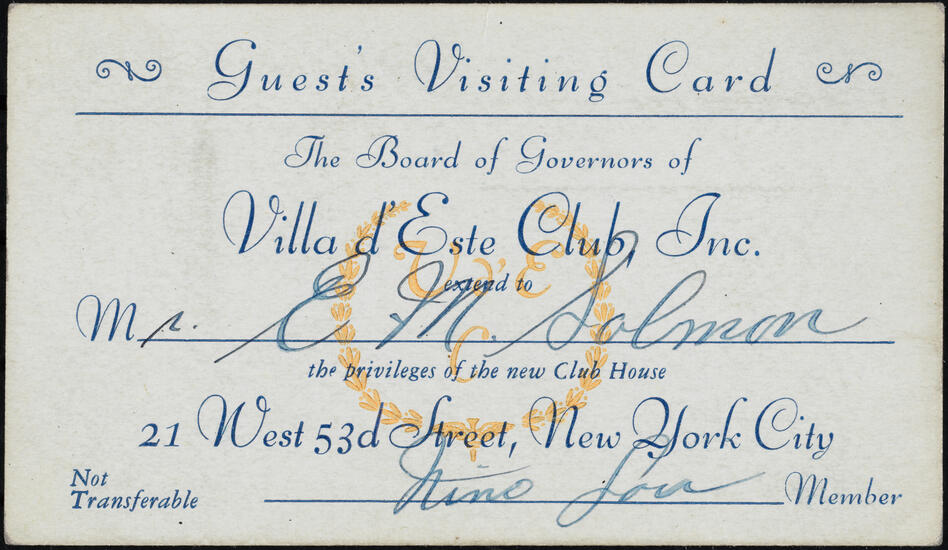 Guest's Visiting Card
The Board of Governors of
Villa d'Este Club, Inc.
V d'E
extend to
Mr. E. M. Solmon
C
the privileges of the new Club House
21 West 53d Street, New York City
Not
Transferable
Nino
Member